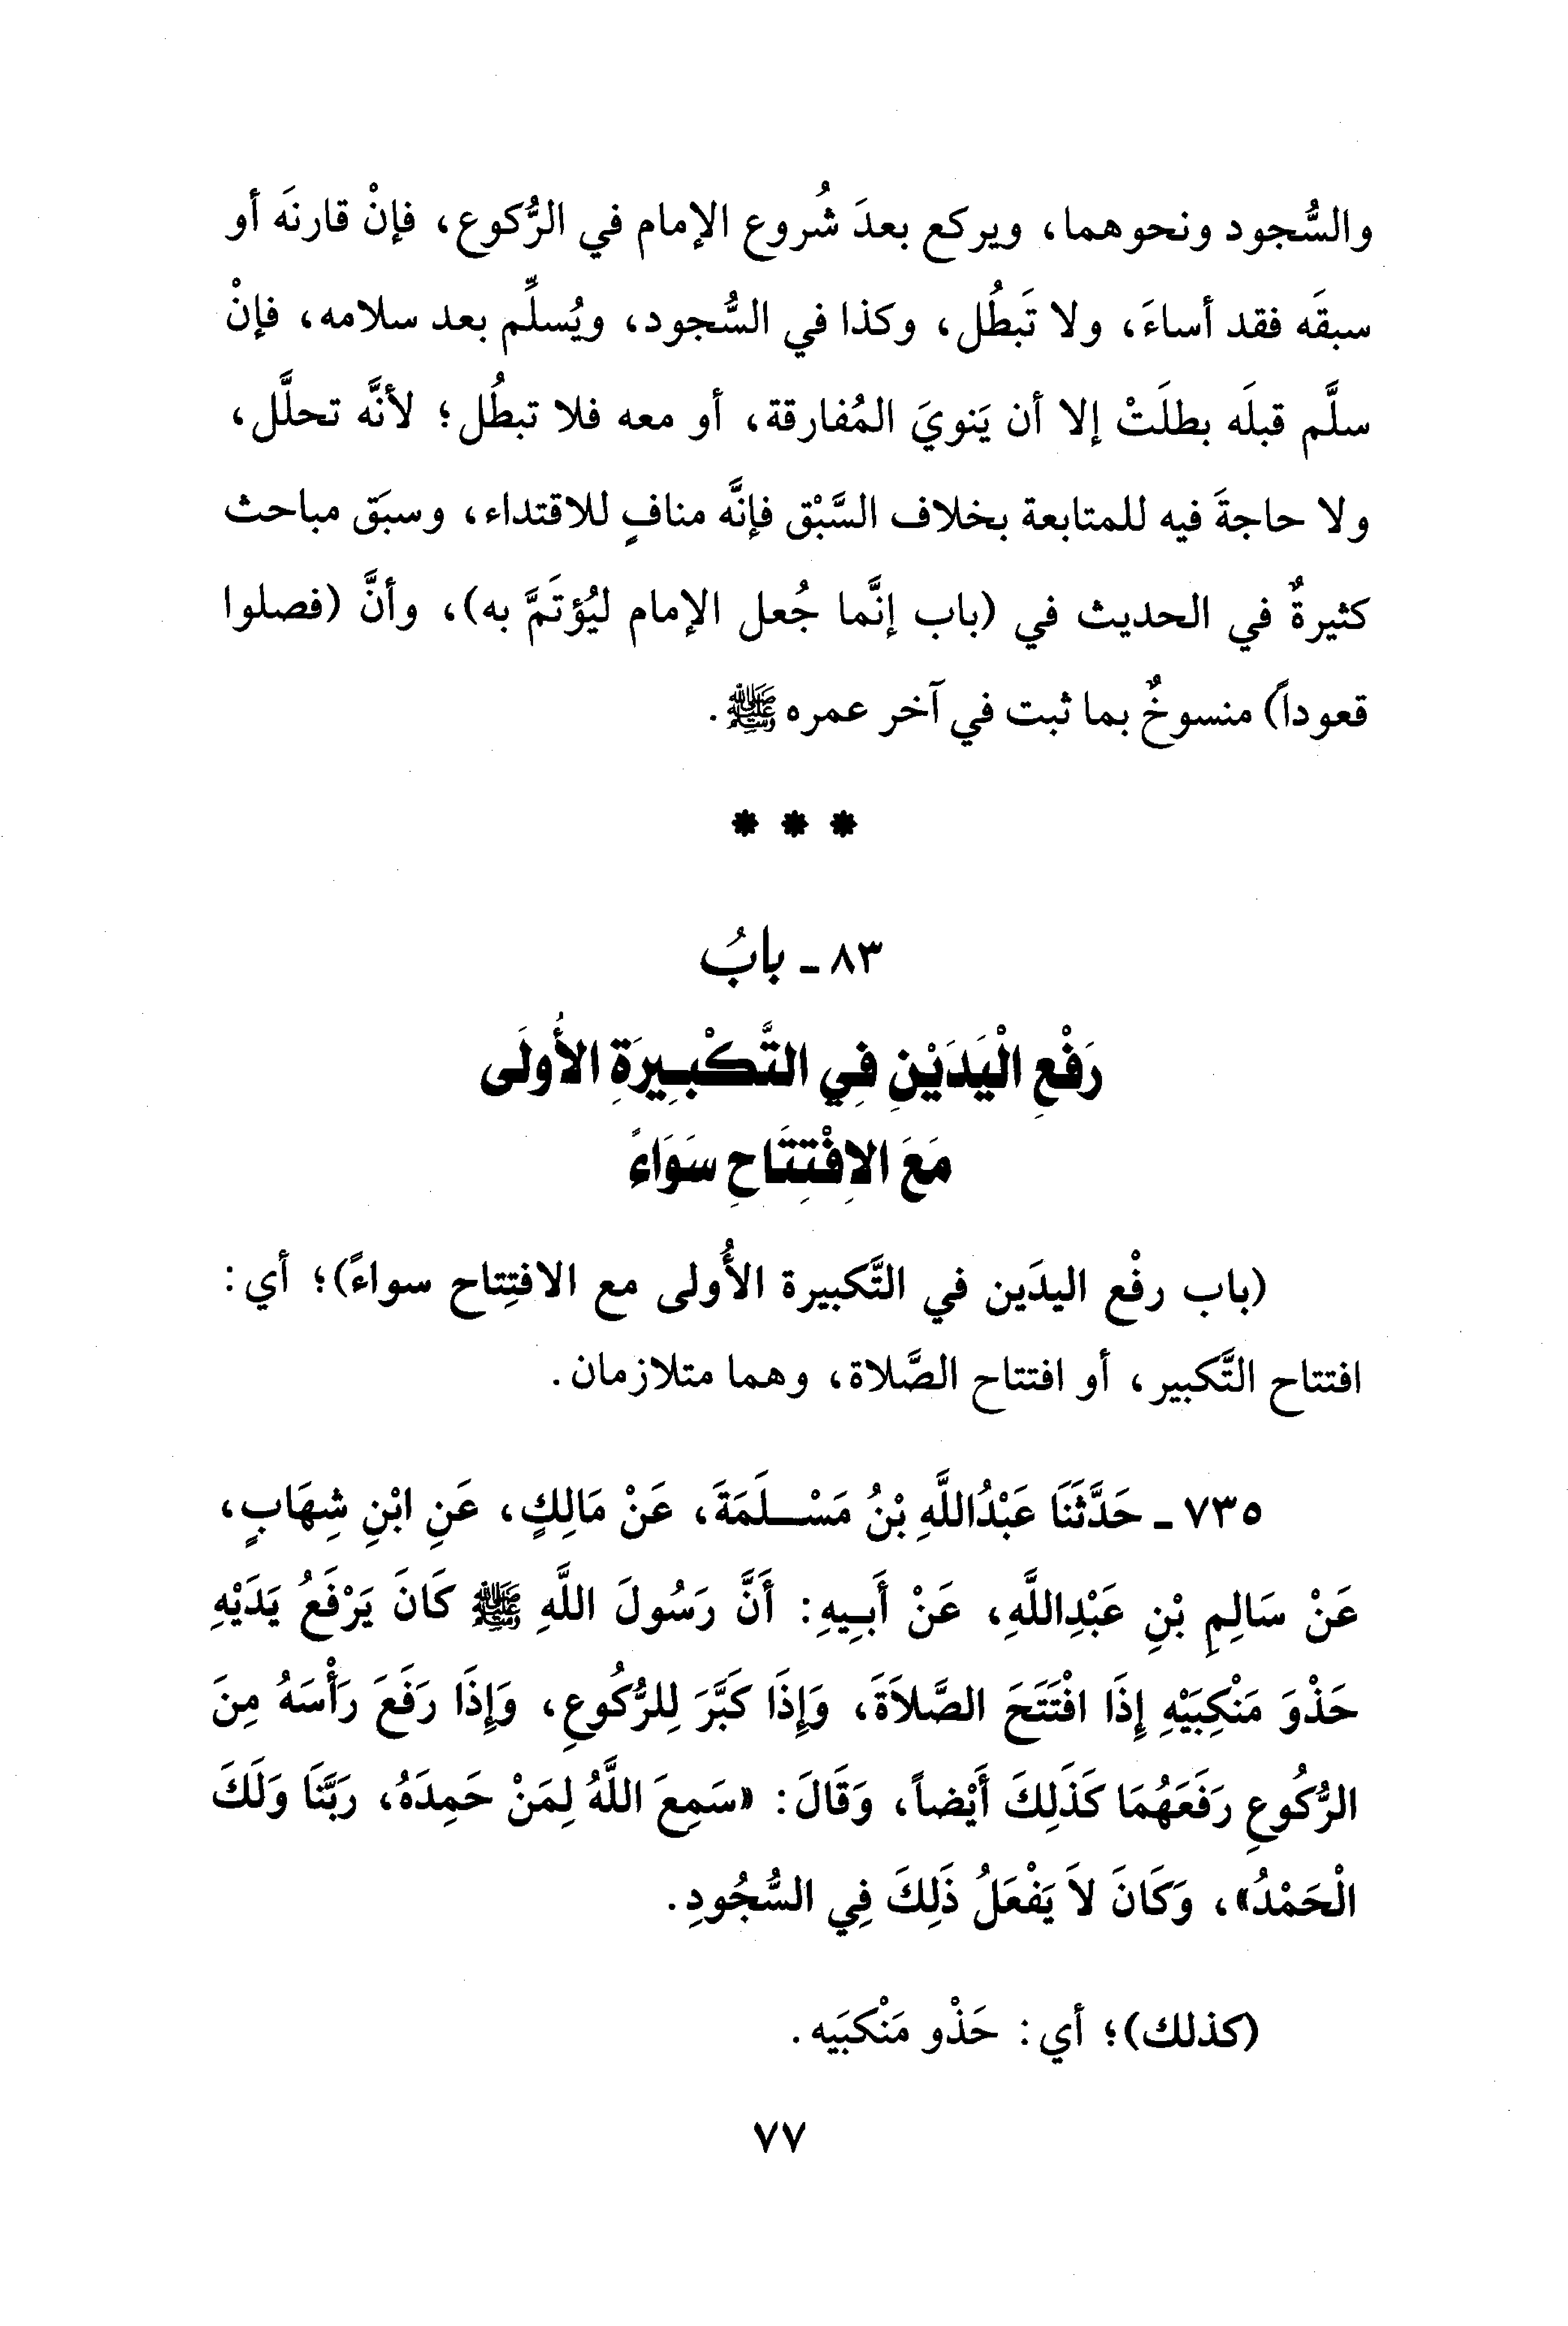 والسُّجود ونحوهما، ويركع بعدَ شُروع الإمام في الرُّكوع، فإنْ قارنَه أو
سبقَه فقد أساءَ، ولا تَبطُل، وكذا في السُّجود، ويُسلِّم بعد سلامه، فإنْ
سلَّم قبلَه بطلَتْ إلا أن يَنويَ المُفارقة، أو معه فلا تبطُل؛ لأنَّه تحلَّل،
ولا حاجةَ فيه للمتابعة بخلاف السَّبْق فإنَّه منافٍ للاقتداء، وسبَق مباحث
كثيرةٌ في الحديث في (باب إنَّما جُعل الإمام ليُؤتَمَّ به)، وأنَّ (فصلوا
قعوداً) منسوخٌ بما ثبت في آخر عمره ﷺ.
* * *
٨٣ - بابُ
رَفْعِ الْيَدَيْنِ فِي التَّكْبِيرَةِ الأُولَى
مَعَ الاِفْتِتَاحِ سَوَاءً
(باب رفْع اليدَين في التَّكبيرة الأُولى مع الافتِتاح سواءً)؛ أي:
افتتاح التَّكبير، أو افتتاح الصَّلاة، وهما متلازمان.
٧٣٥ - حَدَّثَنَا عَبْدُاللَّهِ بْنُ مَسْلَمَةَ، عَنْ مَالِكٍ، عَنِ ابْنِ شِهَابٍ،
عَنْ سَالِمِ بْنِ عَبْدِاللَّهِ، عَنْ أَبِيهِ: أَنَّ رَسُولَ اللَّهِ ﷺ كَانَ يَرْفَعُ يَدَيْهِ
حَذْوَ مَنْكِبَيْهِ إِذَا افْتَتَحَ الصَّلاَةَ، وَإِذَا كَبَّرَ لِلرُّكُوعِ، وَإِذَا رَفَعَ رَأْسَهُ مِنَ
الرُّكُوعِ رَفَعَهُمَا كَذَلِكَ أَيْضاً، وَقَالَ: «سَمِعَ اللَّهُ لِمَنْ حَمِدَهُ، رَبَّنَا وَلَكَ
الْحَمْدُ»، وَكَانَ لاَ يَفْعَلُ ذَلِكَ فِي السُّجُودِ.
(كذلك)؛ أي: حَذْو مَنْكبَيه.
٧٧